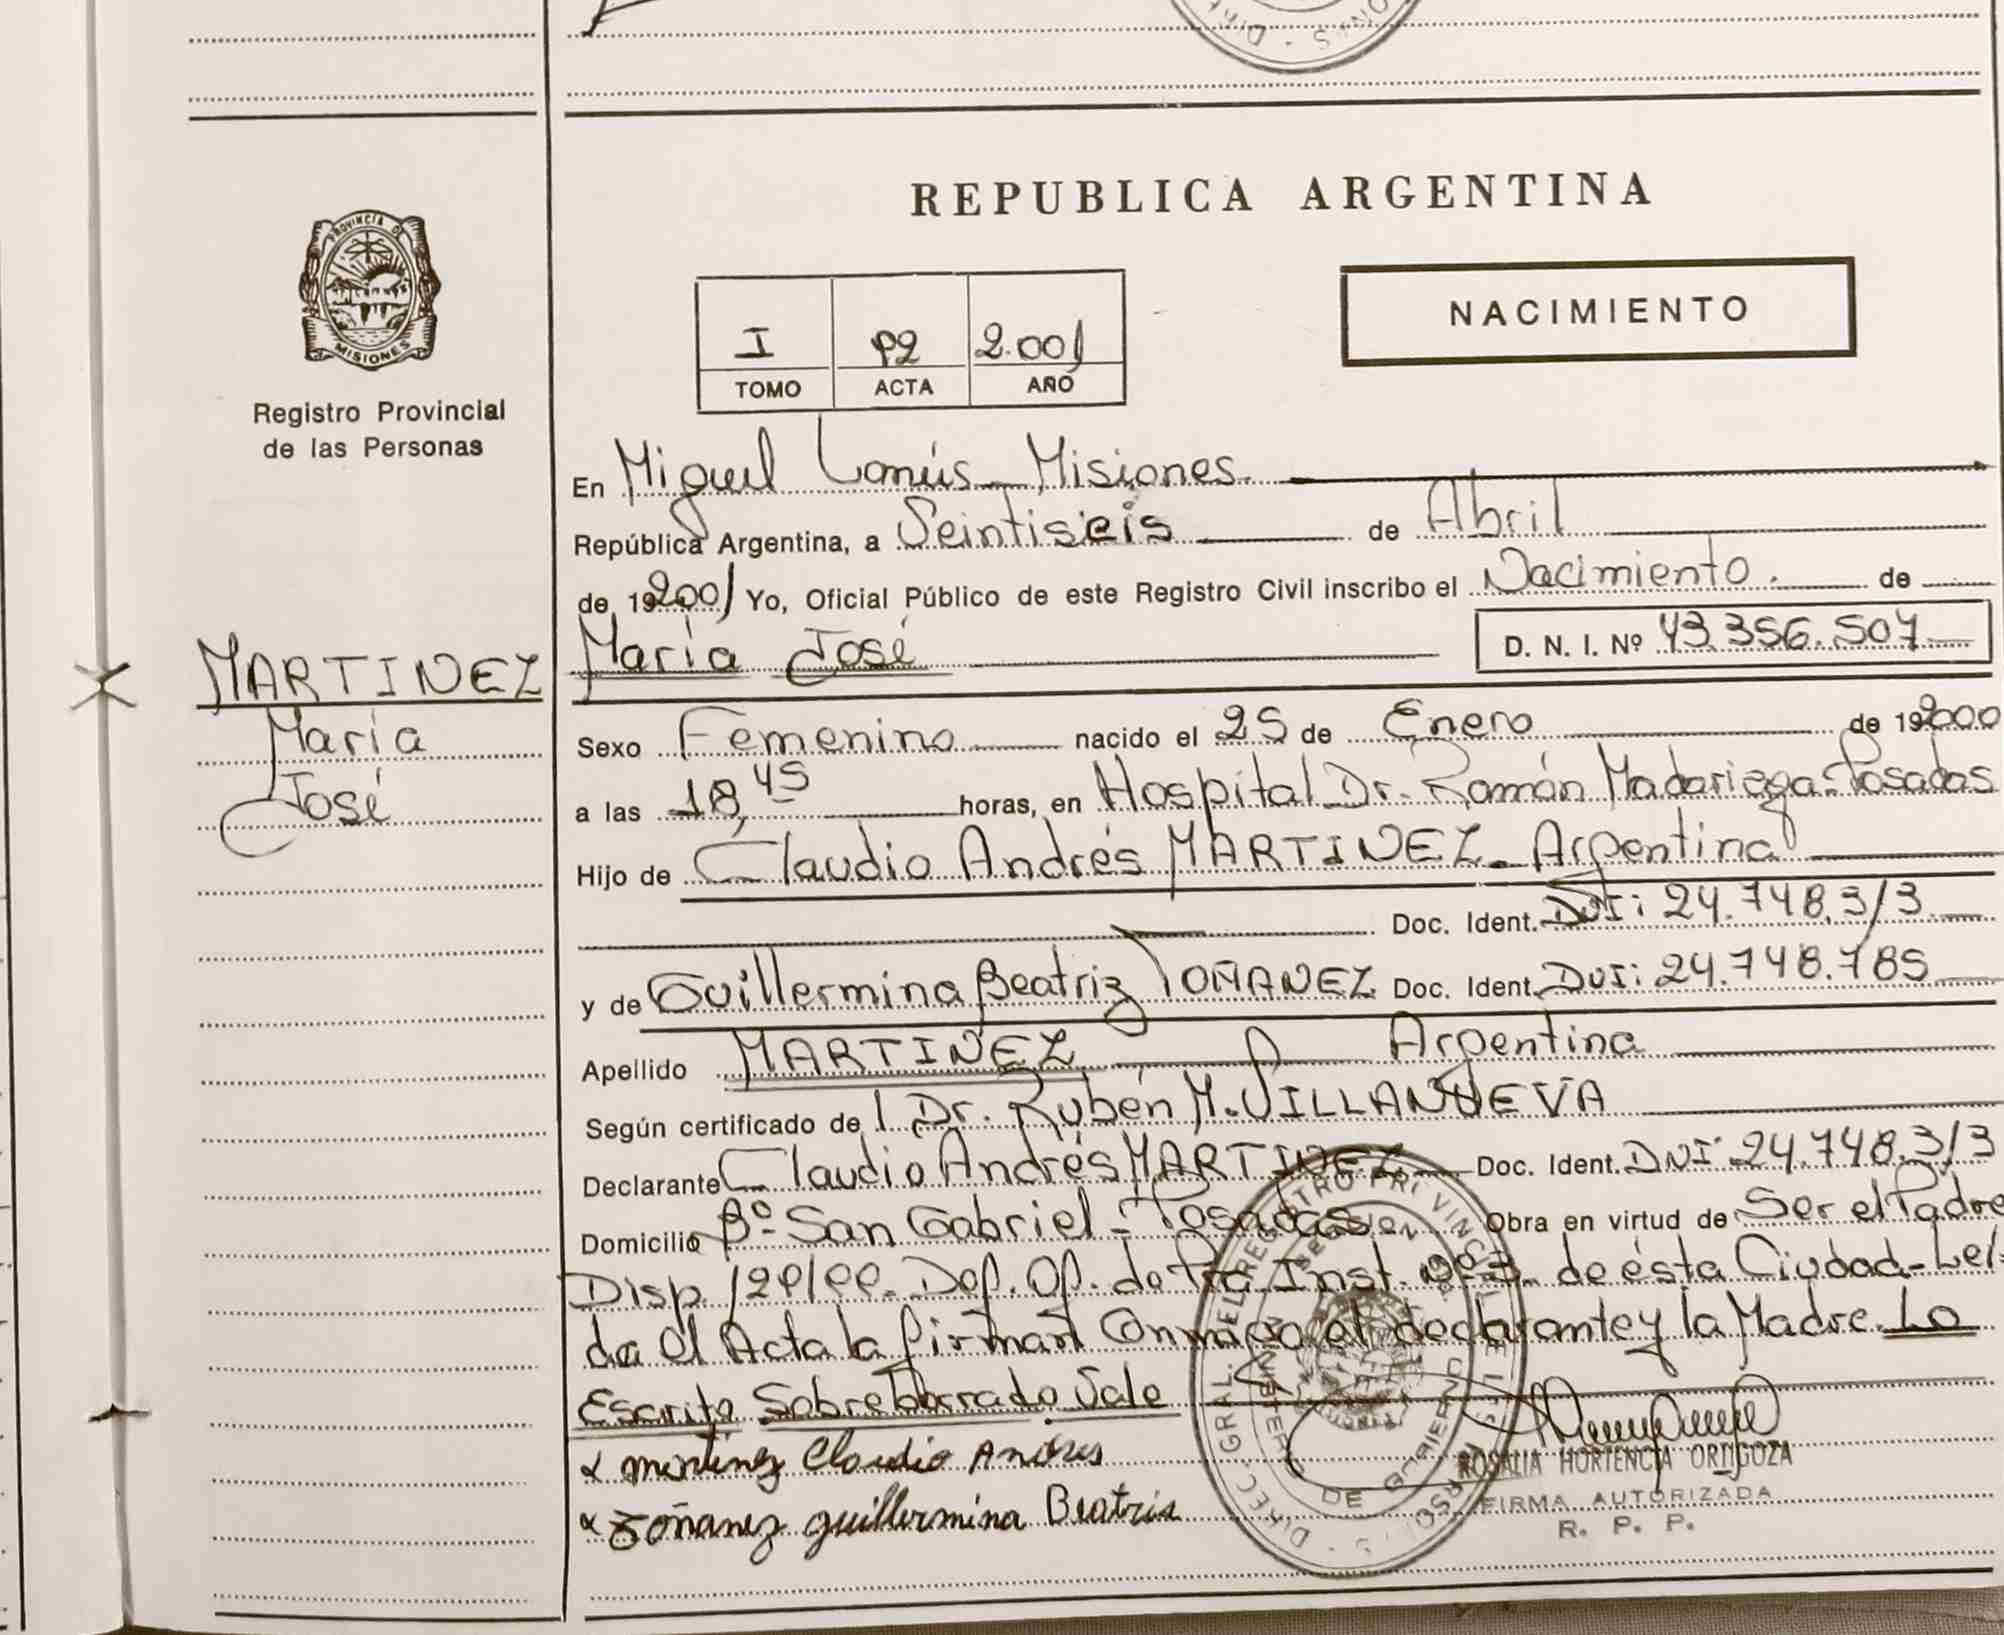 REPUBLICA ARGENTINA
PROVINCIA DE
MISIONES
Registro Provincial
de las Personas
NACIMIENTO
I 92 2.001
TOMO ACTA AÑO
En Miguel Lanús Misiones.
República Argentina, a Veintiseis de Abril
de 192001 Yo, Oficial Público de este Registro Civil inscribo el Nacimiento. de
María José D. N. I. Nº 43.356.507
MARTINEZ
María
José
Sexo Femenino nacido el 25 de Enero de 192000
a las 18,45 horas, en Hospital Dr. Ramón Madariaga-Posadas
Hijo de Claudio Andrés MARTINEZ - Argentina
Doc. Ident. DNI: 24.748.313
y de Guillermina Beatriz TOÑANEZ Doc. Ident. DNI: 24.748.785
Apellido MARTINEZ Argentina
Según certificado de l Dr. Rubén M. VILLANUEVA
Declarante Claudio Andrés MARTINEZ Doc. Ident. DNI 24.748.313
Domicilio Bº San Gabriel - Posadas Obra en virtud de Ser el Padre
Disp. 129/99. Def. Of. de Pra Inst. de ésta Ciudad-Leí-
da el Acta la firman Conmigo el declarante y la Madre. Lo
Escrito Sobre borrado. Vale
x martinez Claudio Andres
x Toñanez guillermina Beatriz
ROSALIA HORTENCIA ORTIGOZA
FIRMA AUTORIZADA
R. P. P.